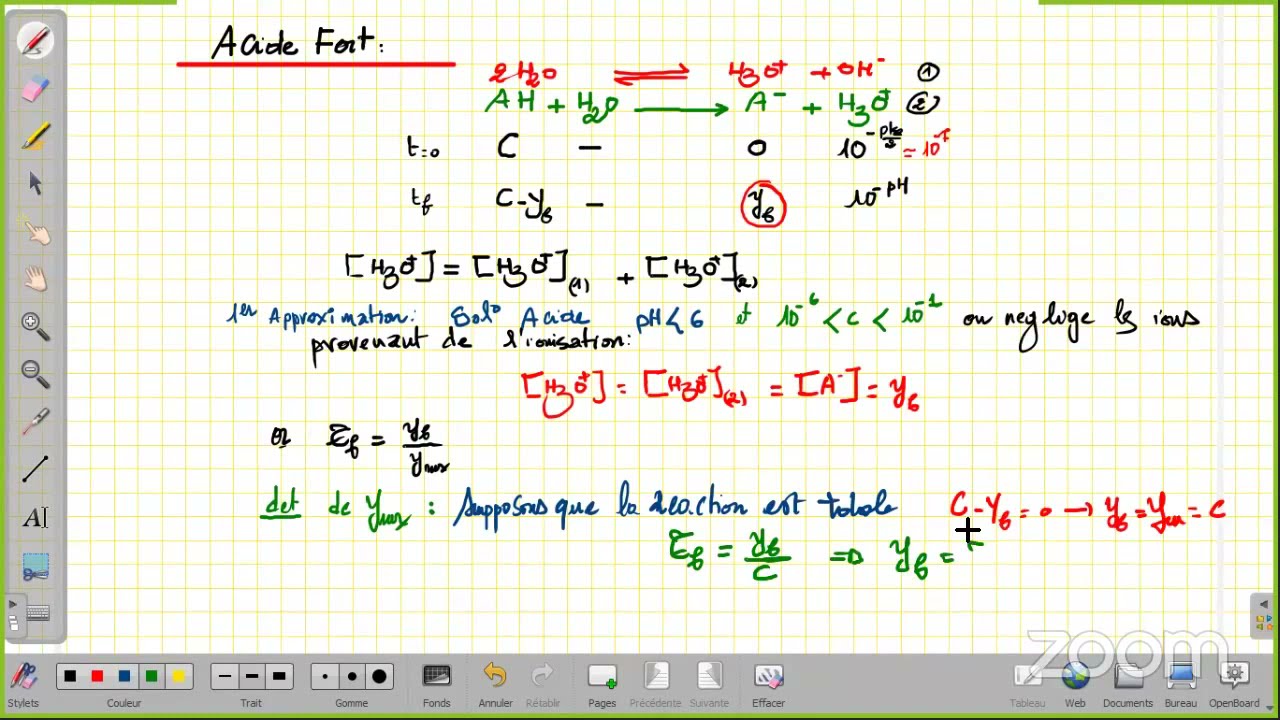 Acide Fort:
2H₂O ⇌ H₃O⁺ + OH⁻ ①
AH + H₂O → A⁻ + H₃O⁺ ②
t=0 C – 0 10^(-pke/2) = 10⁻⁷
tf C-yf – yf 10^-pH
[H₃O⁺] = [H₃O⁺](1) + [H₃O⁺](2)
1er Approximation: Sol° Acide pH < 6 et 10⁻⁶ < C < 10⁻¹ on neglige les ions
provenant de l'ionisation:
[H₃O⁺] = [H₃O⁺](2) = [A⁻] = yf
or τf = yf/ymax
det de ymax : Supposons que la reaction est totale C-yf = 0 → yf = ym = C
τf = yf/C ⇒ yf =
zoom
Stylets
Couleur
Trait
Gomme
Fonds
Annuler
Rétablir
Pages
Précédente
Suivante
Effacer
Tableau
Web
Documents
Bureau
OpenBoard